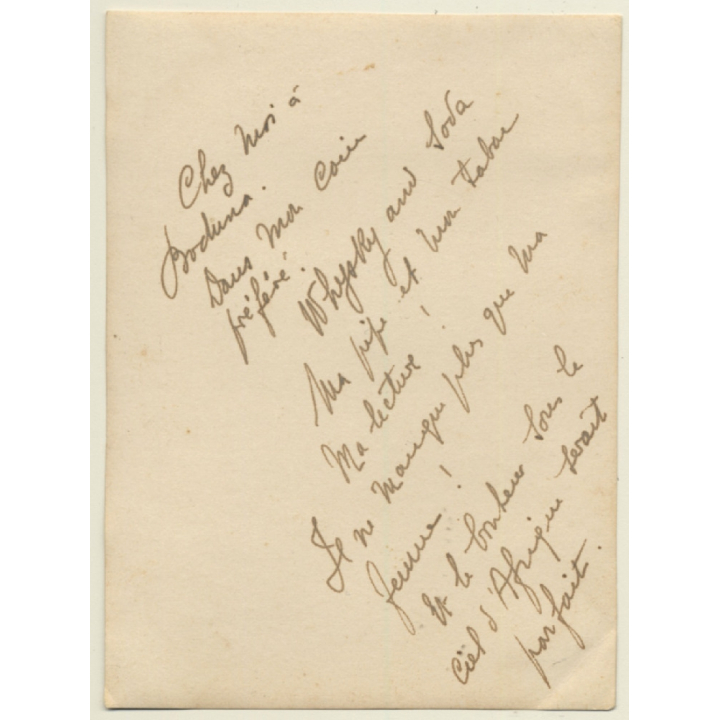 Chez Moi à
Boduna.
Dans Mon Coin
préféré.
Whyskky and Soda
Ma pipe et Mon tabac
Ma lecture !
Il ne manque plus que Ma
femme !
Et le bonheur sous le
Ciel d'Afrique serait
parfait.